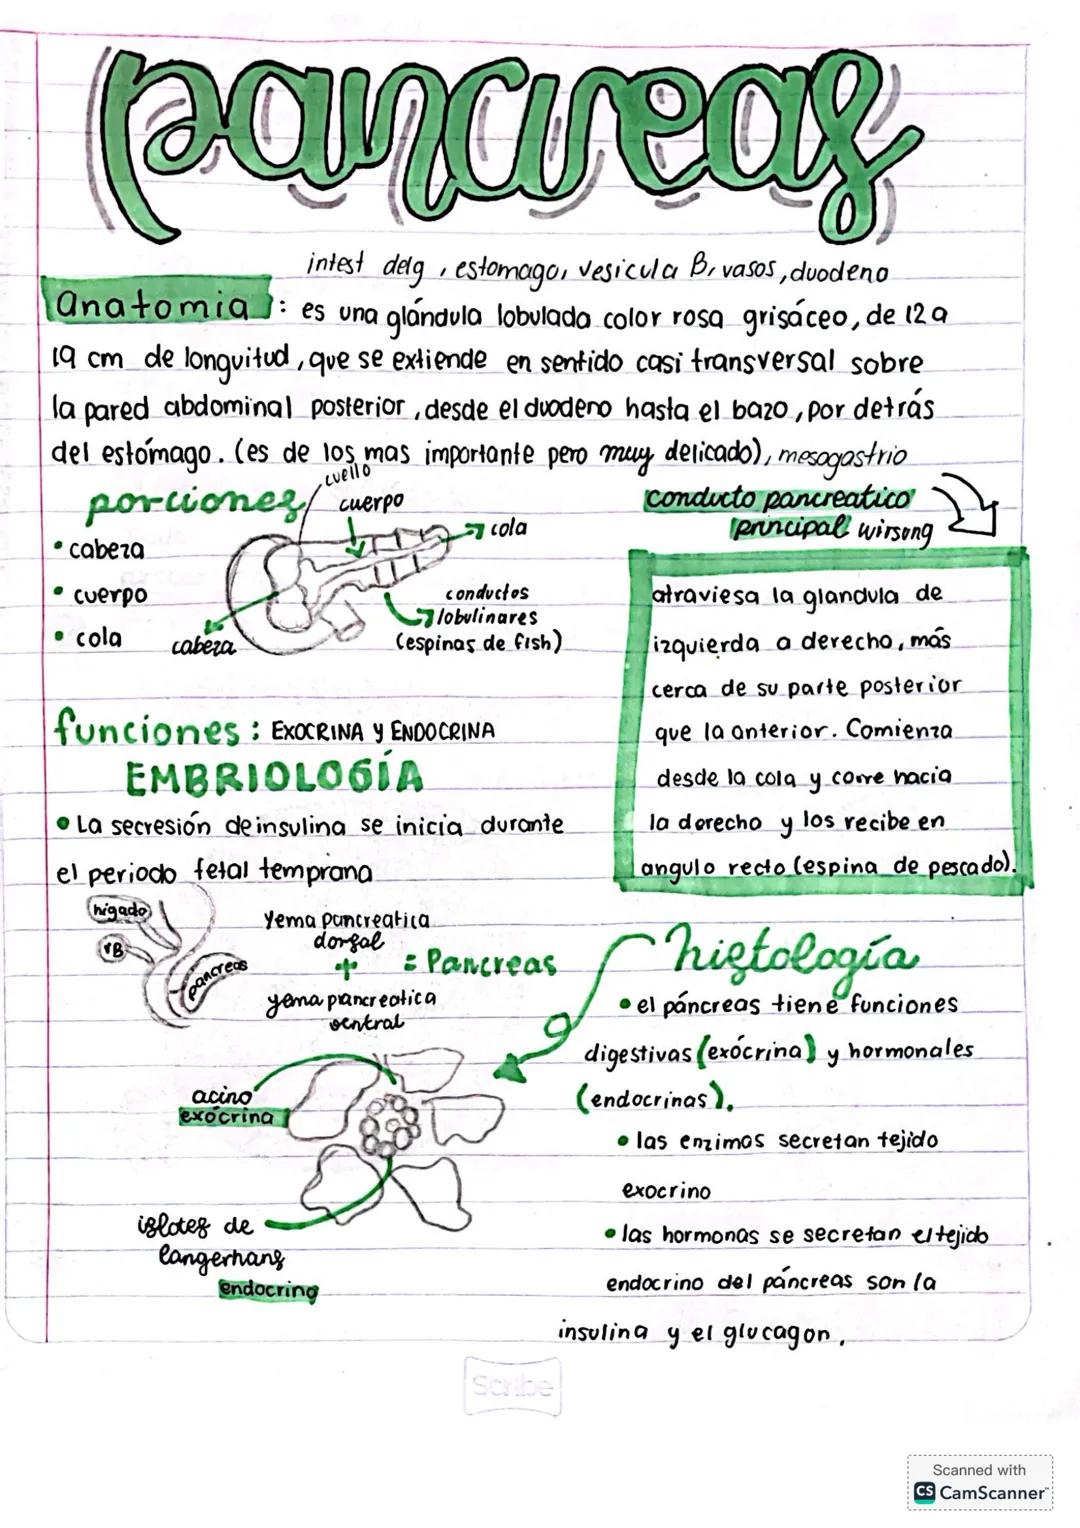 pancreas
intest delg, estomago, vesicula B, vasos, duodeno
anatomia : es una glándula lobulada color rosa grisáceo, de 12 a
19 cm de longuitud, que se extiende en sentido casi transversal sobre
la pared abdominal posterior, desde el duodeno hasta el bazo, por detrás
del estómago. (es de los mas importante pero muy delicado), mesogastrio
porciones
• cabeza
• cuerpo
• cola
cuello
cuerpo
cola
cabeza
conductos
lobulinares
(espinas de fish)
conducto pancreatico
principal wirsung
atraviesa la glandula de
izquierda a derecho, más
cerca de su parte posterior
que la anterior. Comienza
desde la cola y corre hacia
la derecho y los recibe en
angulo recto (espina de pescado).
funciones : EXOCRINA y ENDOCRINA
EMBRIOLOGÍA
• La secresión de insulina se inicia durante
el periodo fetal temprana
hígado
VB
pancreas
yema pancreatica
dorsal
+
yema pancreatica
ventral
= Pancreas
histología
• el páncreas tiene funciones
digestivas (exócrina) y hormonales
(endocrinas).
• las enzimas secretan tejido
exocrino
• las hormonas se secretan el tejido
endocrino del páncreas son la
insulina y el glucagon.
acino
exócrina
islotes de
langerhans
endocrino
Scribe
Scanned with
CS CamScanner